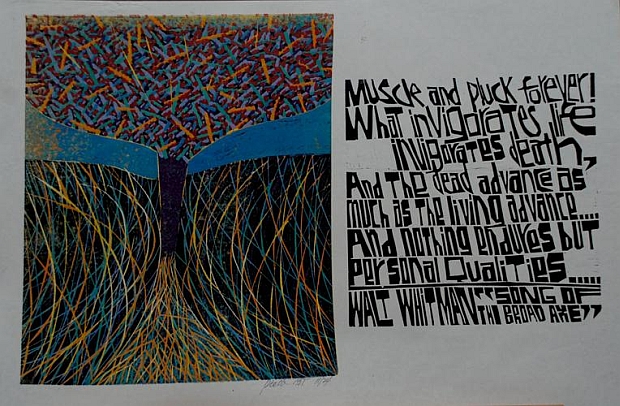 Muscle and pluck forever!
What invigorates life
invigorates death,
And the dead advance as
much as the living advance.....
And nothing endures but
personal Qualities.....
WALT WHITMAN "SONG OF
THE BROAD AXE"